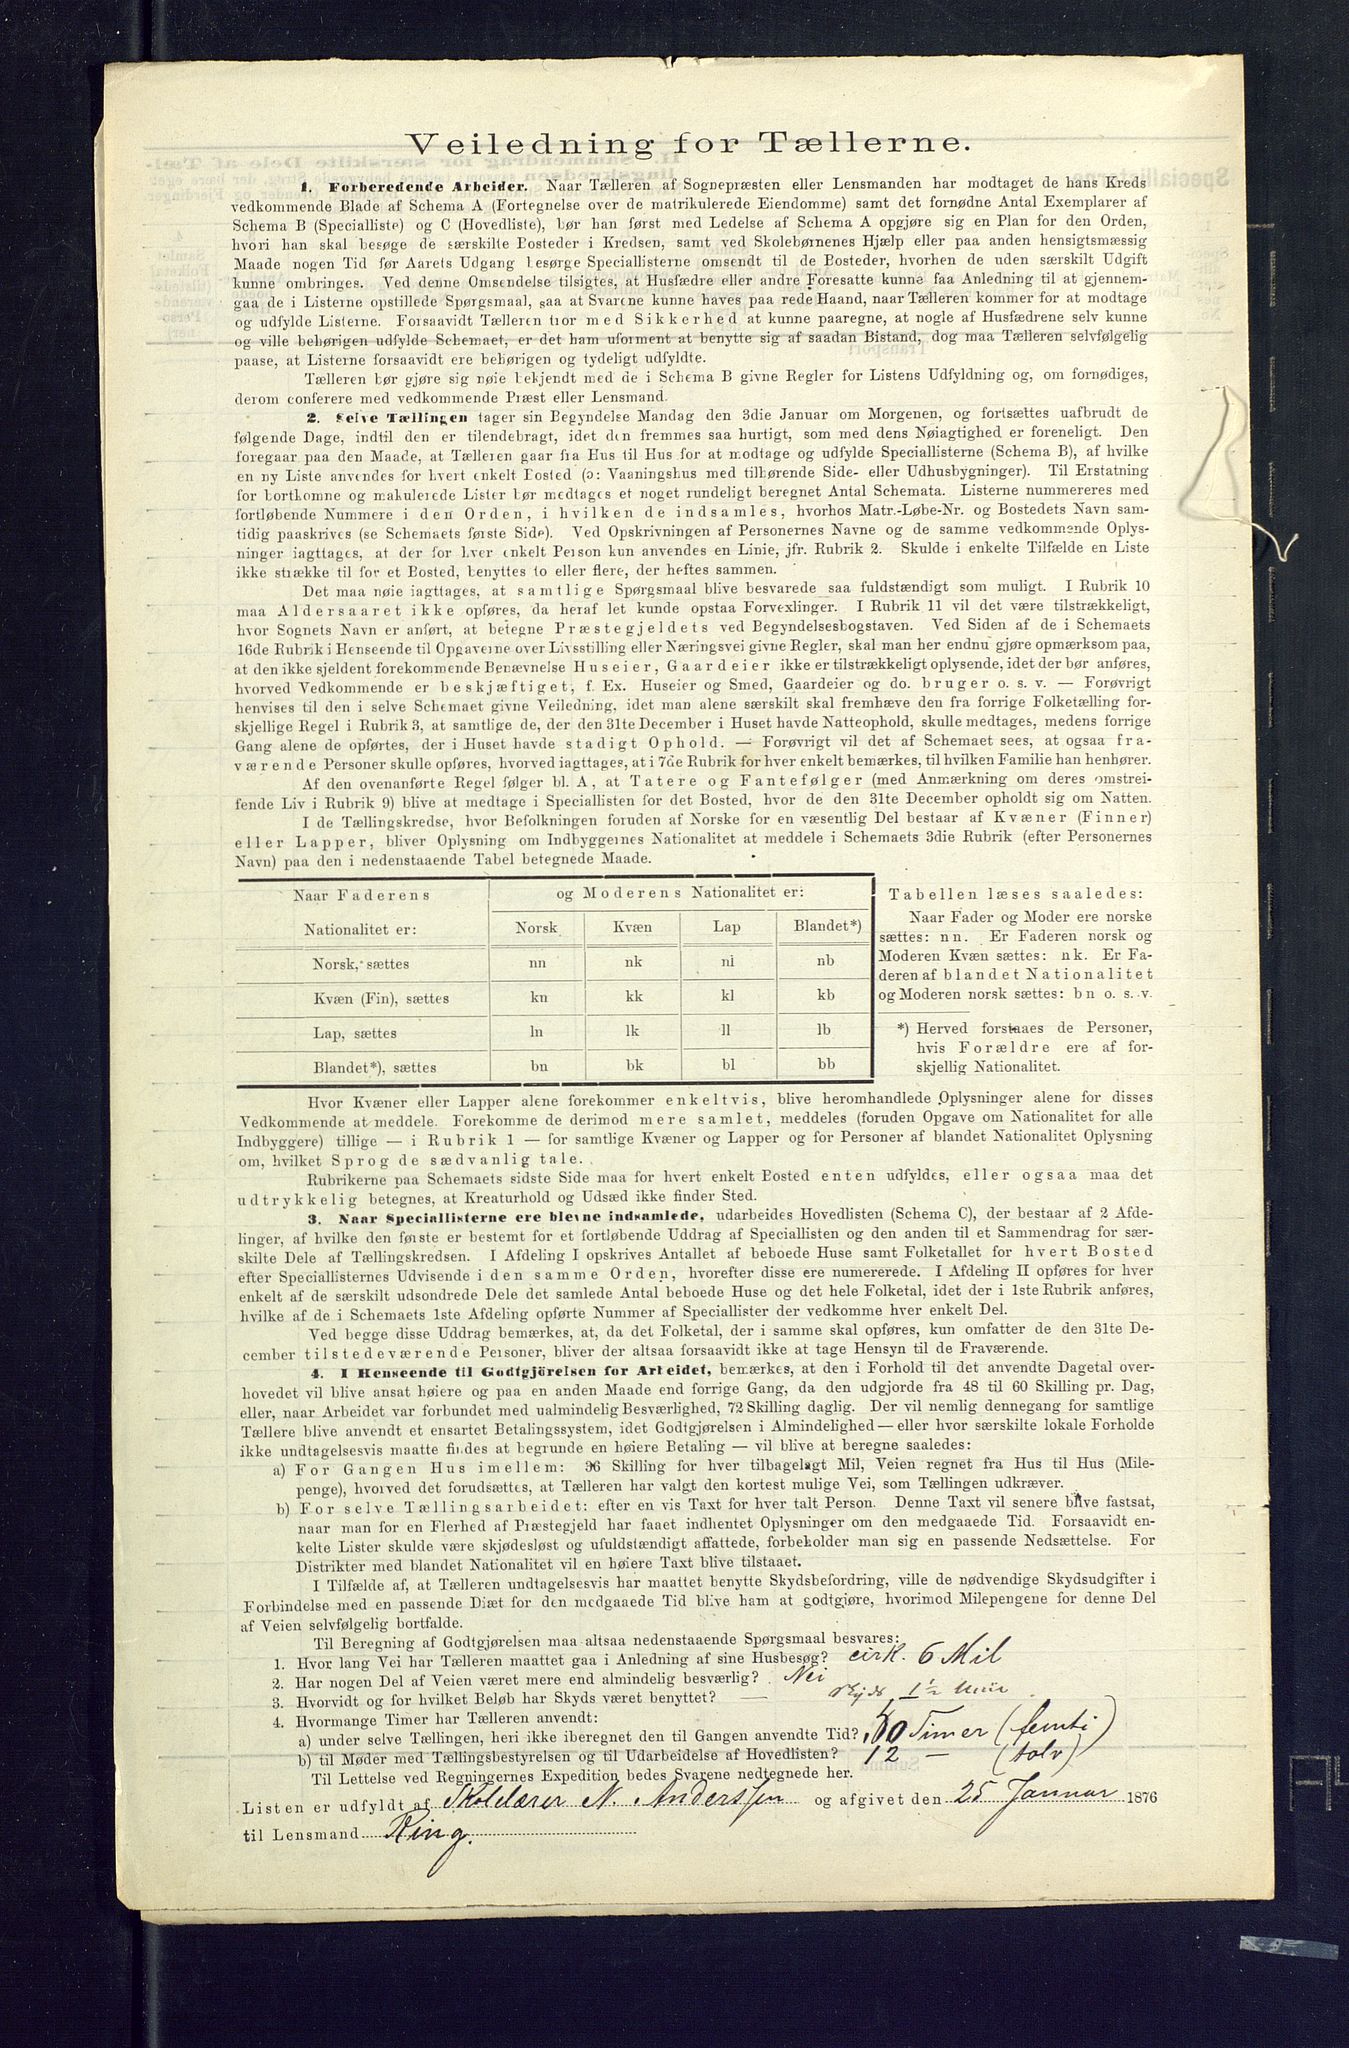 Veiledning for Tællerne.
1. Forberedende Arbeider. Naar Tælleren af Sognepræsten eller Lensmanden har modtaget de hans Kreds
vedkommende Blade af Schema A (Fortegnelse over de matrikulerede Eiendomme) samt det fornødne Antal Exemplarer af
Schema B (Specialliste) og C (Hovedliste), bør han først med Ledelse af Schema A opgjøre sig en Plan for den Orden,
hvori han skal besøge de særskilte Bosteder i Kredsen, samt ved Skolebørnenes Hjælp eller paa anden hensigtsmæssig
Maade nogen Tid før Aarets Udgang besørge Speciallisterne omsendt til de Bosteder, hvorhen de uden særskilt Udgift
kunne ombringes. Ved denne Omsendelse tilsigtes, at Husfædre eller andre Foresatte kunne faa Anledning til at gjennem-
gaa de i Listerne opstillede Spørgsmaal, saa at Svarene kunne haves paa rede Haand, naar Tælleren kommer for at modtage
og udfylde Listerne. Forsaavidt Tælleren tror med Sikkerhed at kunne paaregne, at nogle af Husfædrene selv kunne
og ville behørigen udfylde Schemaet, er det ham uforment at benytte sig af saadan Bistand, dog maa Tælleren selvfølgelig
paase, at Listerne forsaavidt ere behørigen og tydeligt udfyldte.
Tælleren bør gjøre sig nøie bekjendt med de i Schema B givne Regler for Listens Udfyldning og, om fornødiges,
derom conferere med vedkommende Præst eller Lensmand.
2. Selve Tællingen tager sin Begyndelse Mandag den 3die Januar om Morgenen, og fortsættes uafbrudt de
følgende Dage, indtil den er tilendebragt, idet den fremmes saa hurtigt, som med dens Nøiagtighed er foreneligt. Den
foregaar paa den Maade, at Tælleren gaar fra Hus til Hus for at modtage og udfylde Speciallisterne (Schema B), af hvilke
en ny Liste anvendes for hvert enkelt Bosted (ɔ: Vaaningshus med tilhørende Side- eller Udhusbygninger). Til Erstatning
for bortkomne og makulerede Lister bør medtages et noget rundeligt beregnet Antal Schemata. Listerne nummereres med
fortløbende Nummere i den Orden, i hvilken de indsamles, hvorhos Matr.-Løbe-Nr. og Bostedets Navn sam-
tidig paaskrives (se Schemaets første Side). Ved Opskrivningen af Personernes Navne og de samme vedkommende Oplys-
ninger iagttages, at der for hver enkelt Person kun anvendes en Linie, jfr. Rubrik 2. Skulde i enkelte Tilfælde en Liste
ikke strække til for et Bosted, benyttes to eller flere, der heftes sammen.
Det maa nøie iagttages, at samtlige Spørgsmaal blive besvarede saa fuldstændigt som muligt. I Rubrik 10
maa Aldersaaret ikke opføres, da heraf let kunde opstaa Forvexlinger. I Rubrik 11 vil det være tilstrækkeligt,
hvor Sognets Navn er anført, at betegne Præstegjeldets ved Begyndelsesbogstaven. Ved Siden af de i Schemaets
16de Rubrik i Henseende til Opgaverne over Livsstilling eller Næringsvei givne Regler, skal man her endnu gjøre opmærksom paa,
at den ikke sjeldent forekommende Benævnelse Huseier, Gaardeier ikke er tilstrækkeligt oplysende, idet der bør anføres,
hvorved Vedkommende er beskjæftiget, f. Ex. Huseier og Smed, Gaardeier og do. bruger o. s. v. — Forøvrigt
henvises til den i selve Schemaet givne Veiledning, idet man alene særskilt skal fremhæve den fra forrige Folketælling for-
skjellige Regel i Rubrik 3, at samtlige de, der den 31te December i Huset havde Natteophold, skulle medtages, medens forrige
Gang alene de opførtes, der i Huset havde stadigt Ophold. — Forøvrigt vil det af Schemaet sees, at ogsaa fra-
værende Personer skulle opføres, hvorved iagttages, at i 7de Rubrik for hver enkelt bemærkes, til hvilken Familie han henhører.
Af den ovenanførte Regel følger bl. A, at Tatere og Fantefølger (med Anmærkning om deres omstrei-
fende Liv i Rubrik 9) blive at medtage i Speciallisten for det Bosted, hvor de den 31te December opholdt sig om Natten.
I de Tællingskredse, hvor Befolkningen foruden af Norske for en væsentlig Del bestaar af Kvæner (Finner)
eller Lapper, bliver Oplysning om Indbyggernes Nationalitet at meddele i Schemaets 3die Rubrik (efter Personernes
Navn) paa den i nedenstaaende Tabel betegnede Maade.
Naar Faderens og Moderens Nationalitet er:
Nationalitet er: Norsk Kvæn Lap Blandet*)
Norsk, sættes nn nk nl nb
Kvæn (Fin), sættes kn kk kl kb
Lap, sættes ln lk ll lb
Blandet*), sættes bn bk bl bb
Tabellen læses saaledes:
Naar Fader og Moder ere norske
sættes: nn. Er Faderen norsk og
Moderen Kvæn sættes: nk. Er Fa-
deren af blandet Nationalitet
og Moderen norsk sættes: bn o. s. v.
*) Herved forstaaes de Personer,
hvis Forældre ere af for-
skjellig Nationalitet.
Hvor Kvæner eller Lapper alene forekommer enkeltvis, blive heromhandlede Oplysninger alene for disses
Vedkommende at meddele. Forekomme de derimod mere samlet, meddeles (foruden Opgave om Nationalitet for alle
Indbyggere) tillige — i Rubrik 1 — for samtlige Kvæner og Lapper og for Personer af blandet Nationalitet Oplysning
om, hvilket Sprog de sædvanlig tale.
Rubrikerne paa Schemaets sidste Side maa for hvert enkelt Bosted enten udfyldes, eller ogsaa maa det
udtrykkelig betegnes, at Kreaturhold og Udsæd ikke finder Sted.
3. Naar Speciallisterne ere blevne indsamlede, udarbeides Hovedlisten (Schema C), der bestaar af 2 Afde-
linger, af hvilke den første er bestemt for et fortløbende Uddrag af Speciallisten og den anden til et Sammendrag for sær-
skilte Dele af Tællingskredsen. I Afdeling I opskrives Antallet af beboede Huse samt Folketallet for hvert Bosted
efter Speciallisternes Udvisende i den samme Orden, hvorefter disse ere numererede. I Afdeling II opføres for hver
enkelt af de særskilt udsondrede Dele det samlede Antal beboede Huse og det hele Folketal, idet der i 1ste Rubrik anføres,
hvilke af de i Schemaets 1ste Afdeling opførte Nummer af Speciallister der vedkomme hver enkelt Del.
Ved begge disse Uddrag bemærkes, at, da det Folketal, der i samme skal opføres, kun omfatter de den 31te De-
cember tilstedeværende Personer, bliver der altsaa forsaavidt ikke at tage Hensyn til de Fraværende.
4. I Henseende til Godtgjörelsen for Arbeidet, bemærkes, at den i Forhold til det anvendte Dagetal over-
hovedet vil blive ansat høiere og paa en anden Maade end forrige Gang, da den udgjorde fra 48 til 60 Skilling pr. Dag,
eller, naar Arbeidet var forbundet med ualmindelig Besværlighed, 72 Skilling daglig. Der vil nemlig dennegang for samtlige
Tællere blive anvendt et ensartet Betalingssystem, idet Godtgjørelsen i Almindelighed — eller hvor særskilte lokale Forholde
ikke undtagelsesvis maatte findes at begrunde en høiere Betaling — vil blive at beregne saaledes:
a) For Gangen Hus imellem: 36 Skilling for hver tilbagelagt Mil, Veien regnet fra Hus til Hus (Mile-
penge), hvorved det forudsættes, at Tælleren har valgt den kortest mulige Vei, som Tællingen udkræver.
b) For selve Tællingsarbeidet: efter en vis Taxt for hver talt Person. Denne Taxt vil senere blive fastsat,
naar man for en Flerhed af Præstegjeld har faaet indhentet Oplysninger om den medgaaede Tid. Forsaavidt en-
kelte Lister skulde være skjødesløst og ufuldstændigt affattede, forbeholder man sig en passende Nedsættelse. For
Distrikter med blandet Nationalitet vil en høiere Taxt blive tilstaaet.
I Tilfælde af, at Tælleren undtagelsesvis har maattet benytte Skydsbefordring, ville de nødvendige Skydsudgifter i
Forbindelse med en passende Diæt for den medgaaede Tid blive ham at godtgjøre, hvorimod Milepengene for denne Del
af Veien selvfølgelig bortfalde.
Til Beregning af Godtgjørelsen maa altsaa nedenstaaende Spørgsmaal besvares:
1. Hvor lang Vei har Tælleren maattet gaa i Anledning af sine Husbesøg? cirk. 6 Mil
2. Har nogen Del af Veien været mere end almindelig besværlig? Nei
3. Hvorvidt og for hvilket Beløb har Skyds været benyttet? — Skyds 1½
4. Hvormange Timer har Tælleren anvendt:
a) under selve Tællingen, heri ikke iberegnet den til Gangen anvendte Tid? 50 Timer (femti)
b) til Møder med Tællingsbestyrelsen og til Udarbeidelse af Hovedlisten? 12 — (tolv)
Til Lettelse ved Regningernes Expedition bedes Svarene nedtegnede her.
Listen er udfyldt af Skolelærer N. Anderssen og afgivet den 25 Januar 1876
til Lensmand Ring.